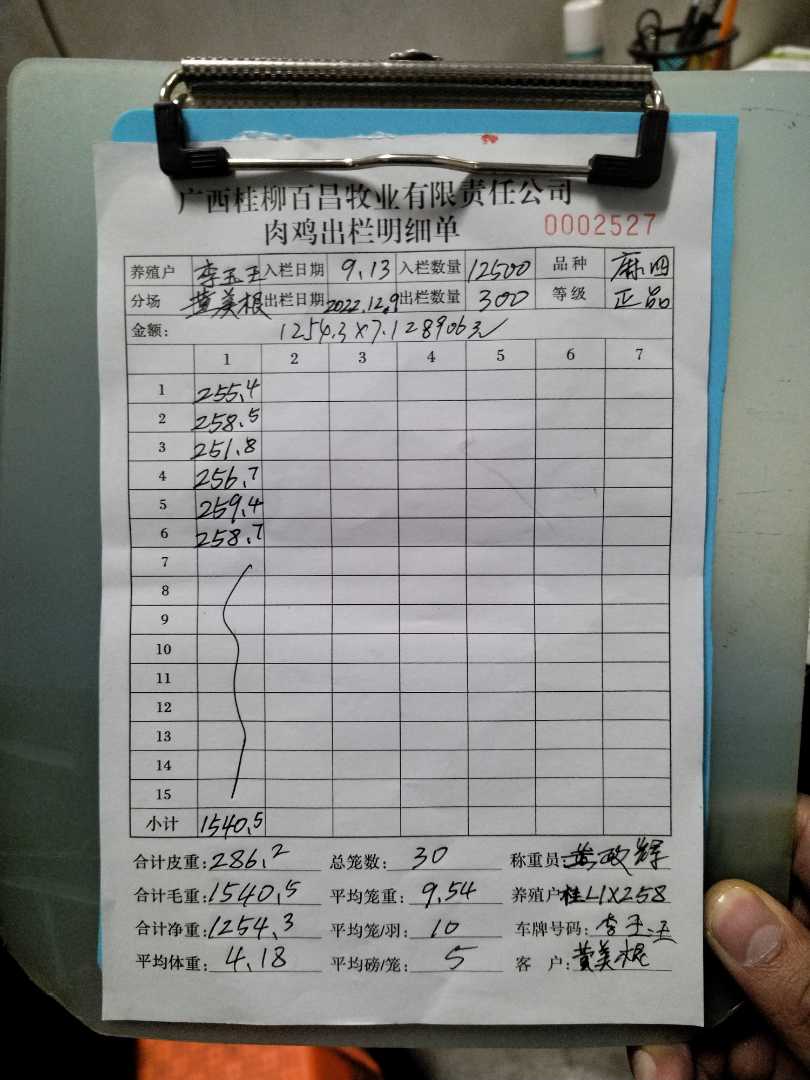 广西桂柳百昌牧业有限责任公司
肉鸡出栏明细单 0002527
养殖户 李玉 入栏日期 9.13 入栏数量 12500 品种 麻四
分场 黄美根 出栏日期 2022.12.9 出栏数量 300 等级 正品
金额: 1254.3×7.1 28906元
1 2 3 4 5 6 7
1 255.4
2 258.5
3 251.8
4 256.7
5 259.4
6 258.7
7
8
9
10
11
12
13
14
15
小计 1540.5
合计皮重: 286.2 总笼数: 30 称重员: 黄政辉
合计毛重: 1540.5 平均笼重: 9.54 养殖户: 桂L1X258
合计净重: 1254.3 平均笼/羽: 10 车牌号码: 李玉
平均体重: 4.18 平均磅/笼: 5 客户: 黄美根